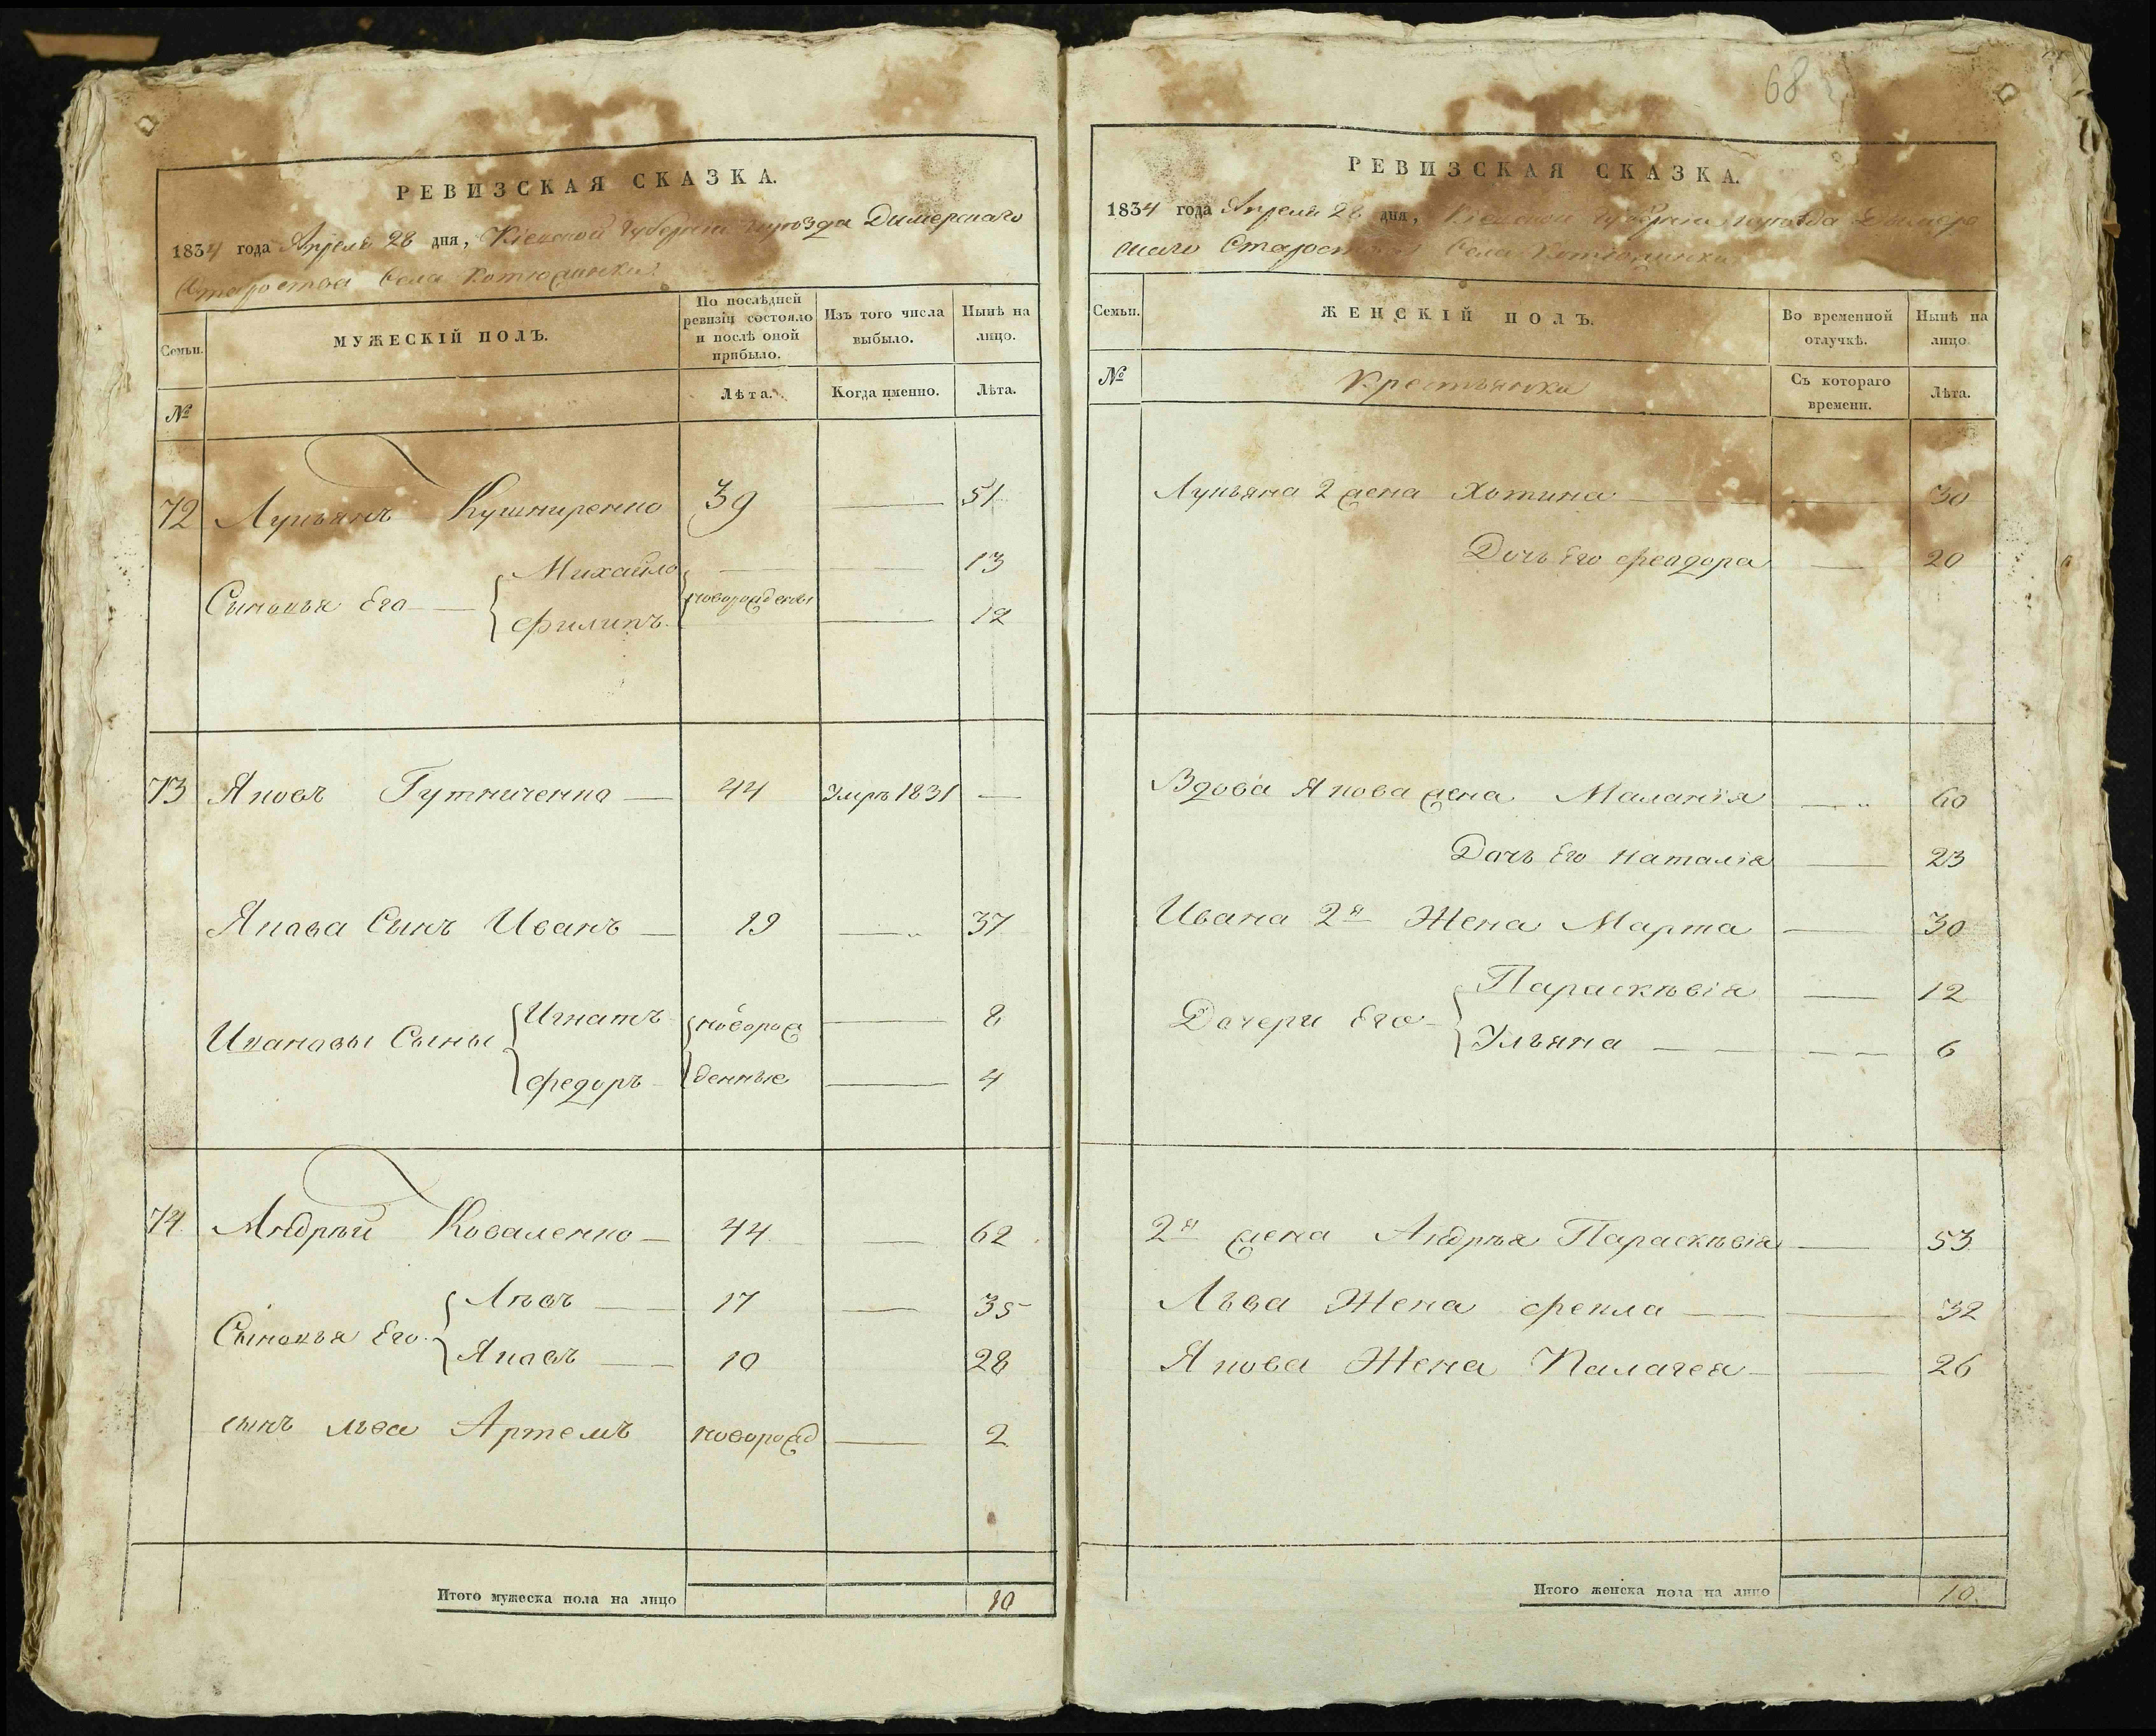 РЕВИЗСКАЯ СКАЗКА.
1834 года Апреля 28 дня, Кіевской Губерніи и уѣзда Димерскаго
Староства Села Котюжинки
Семьи.
МУЖЕСКІЙ ПОЛЪ.
По послѣдней ревизіи состояло и послѣ оной прибыло.
Изъ того числа выбыло.
Нынѣ на лицо.
№
Лѣта.
Когда именно.
Лѣта.
72 Лукьянъ Кушниренко 39 — 51
Михайло — — 13
Сыновья Его новорожденны
Филипъ — 12
73 Яковъ Гутниченко — 44 Умръ 1831 —
Якова Сынъ Иванъ — 19 — 37
Игнатъ новорож — 8
Ивановы Сыны
Федоръ денные — 4
74 Андрѣй Коваленко — 44 — 62
Лѣвъ — 17 — 35
Сыновья Его
Яковъ — 10 28
сынъ льва Артемъ новорожд — 2
Итого мужеска пола на лицо 10
68
РЕВИЗСКАЯ СКАЗКА.
1834 года Апреля 28 дня, Кіевской Губерніи и уѣзда Димер
скаго Староства Села
Семьи.
ЖЕНСКІЙ ПОЛЪ.
Во временной отлучкѣ.
Нынѣ на лицо.
№
Крестьянки
Съ котораго времени.
Лѣта.
Лукьяна 2 жена Хотина — — 30
Дочь Его Феодора — 20
Вдова Якова жена Маланія — 60
Дочь Его Наталія — 23
Ивана 2я Жена Марта — 30
Параскѣвія — 12
Дочери Его
Ульяна — — — — 6
2я жена Андрѣя Параскѣвія — 53
Льва Жена Фекла — — 32
Якова Жена Палагея — — 26
Итого женска пола на лицо 10